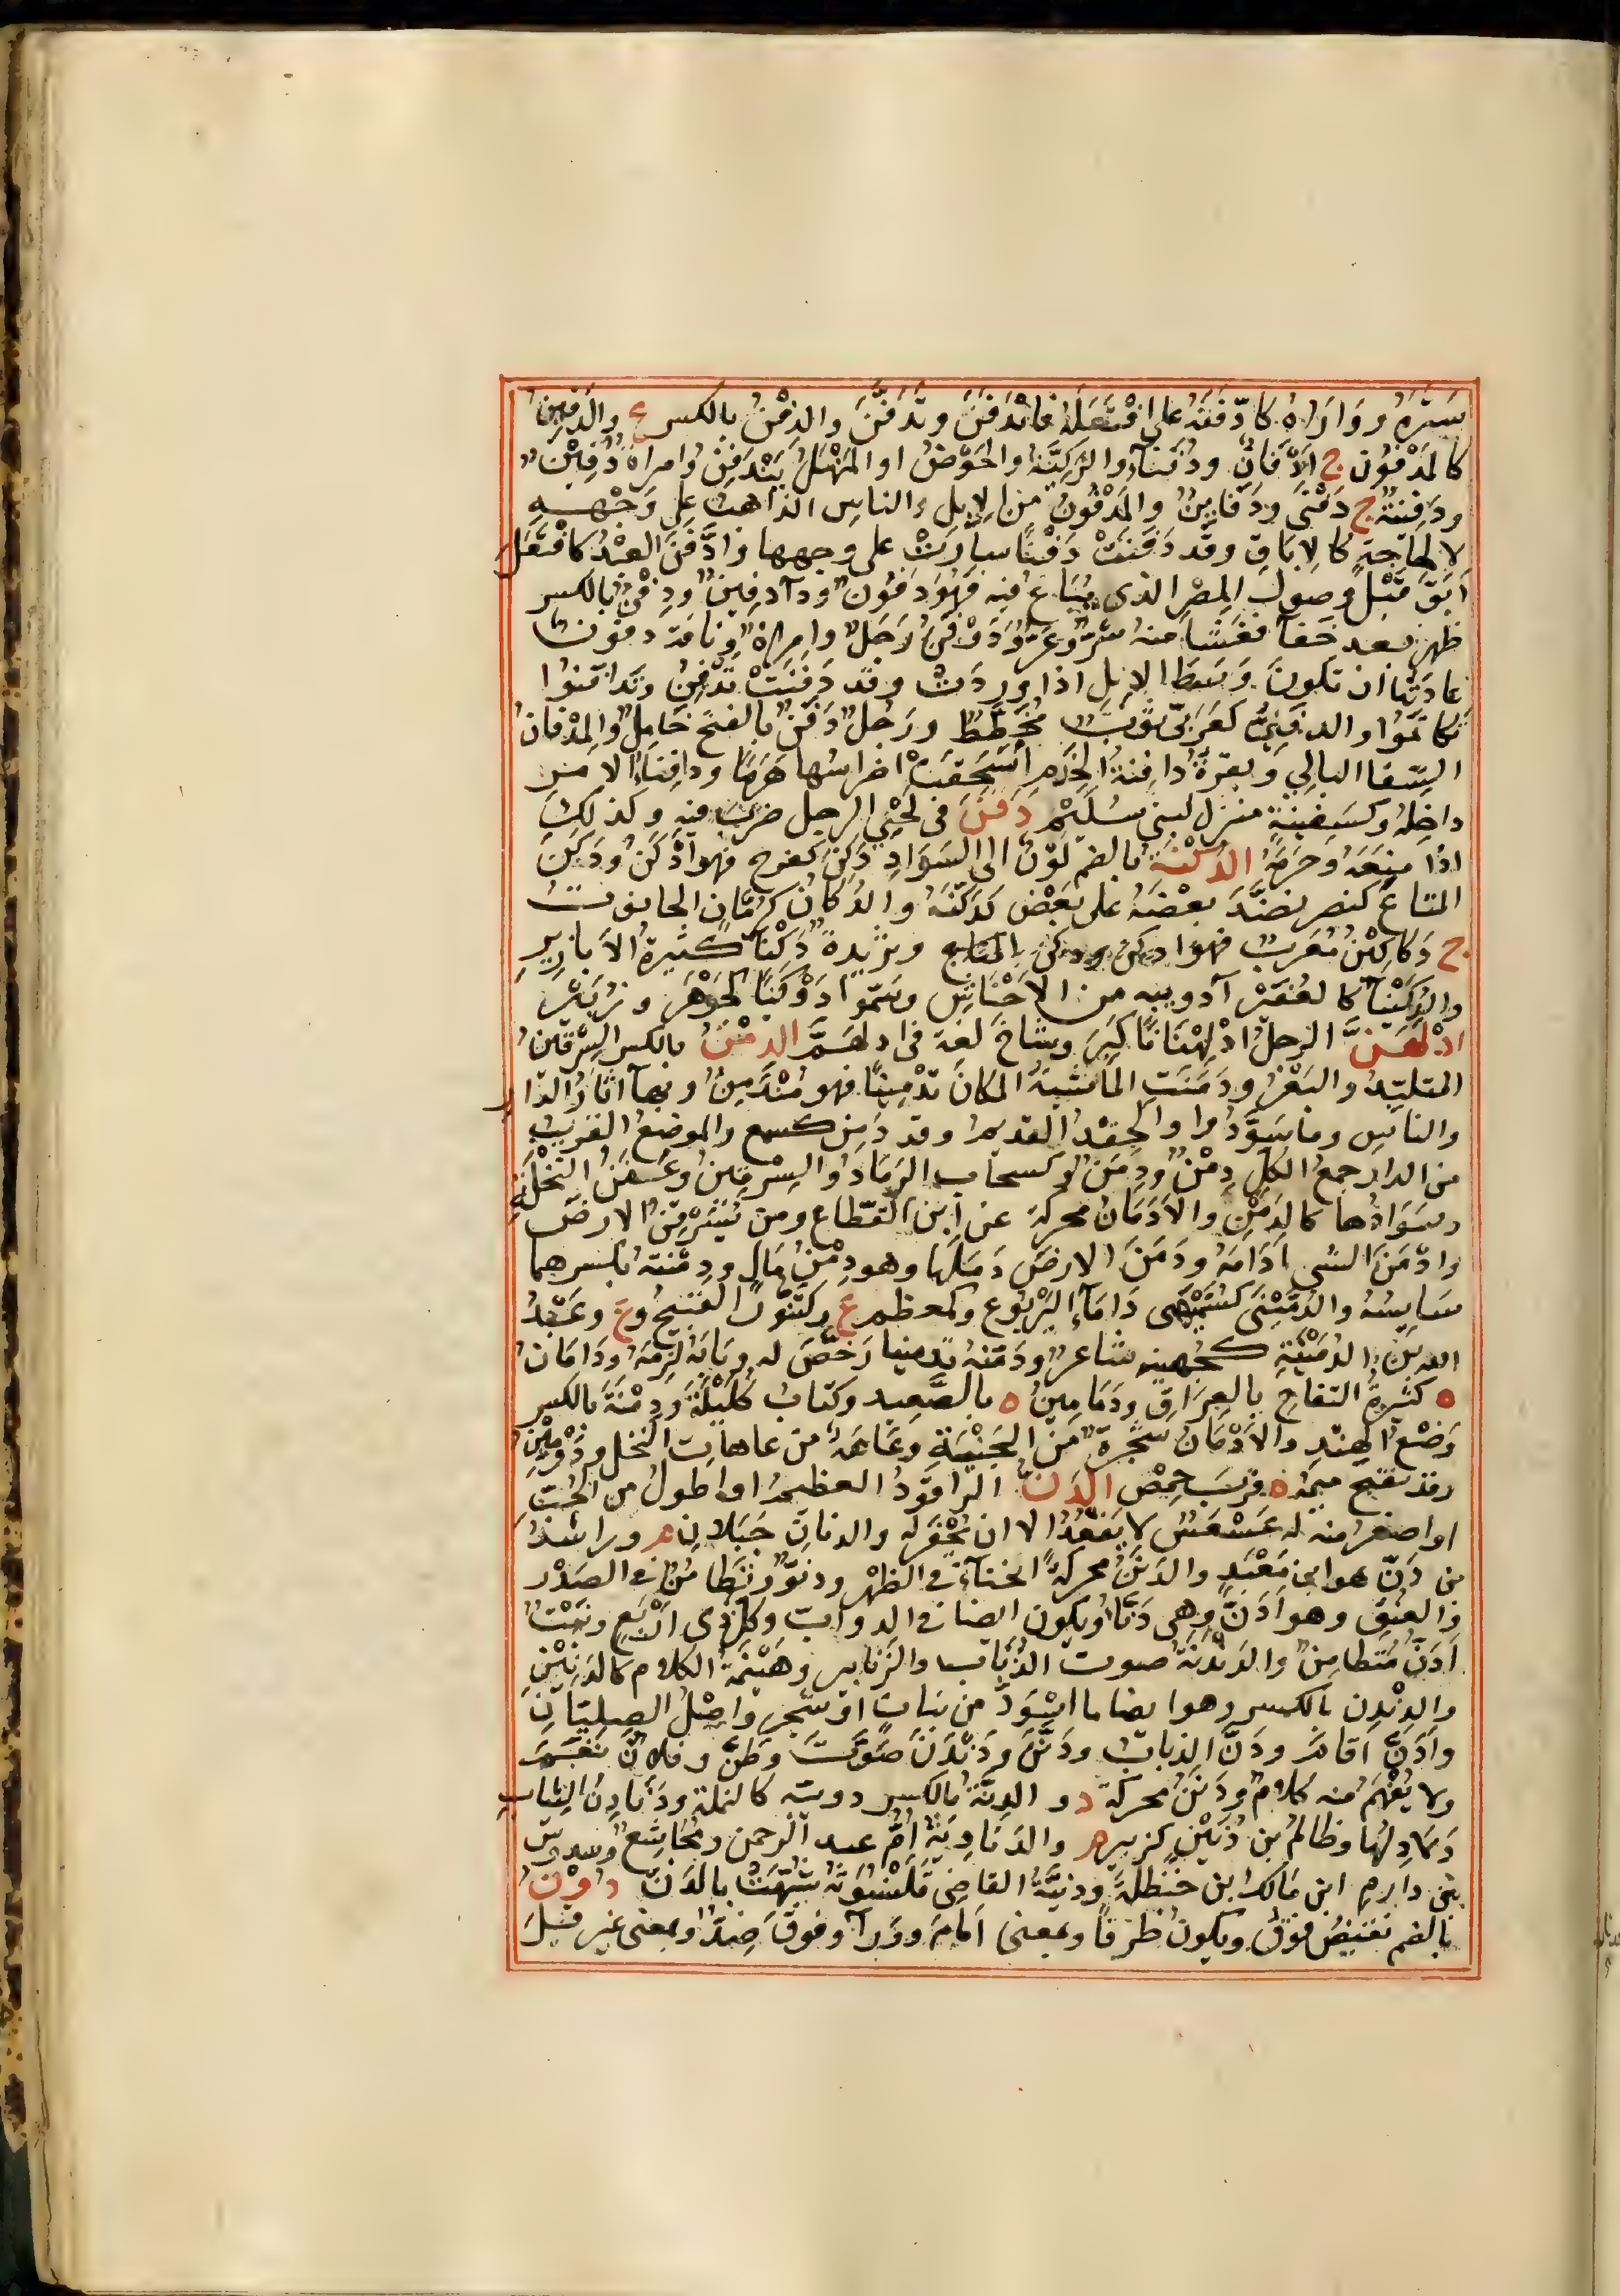 سَتَرَهُ ووَارَاهُ كادّفَنَهُ على افْتَعَلَهُ فاندَفَنَ وتَدَفَّنَ والدِفْنُ بالكسر ع والدَفِينُ
كالمَدْفُون ج ادْفَانٌ ودُفَنَآءُ والرَكِيَّةُ والحَوْضُ او المَنْهَلُ يَنْدَفِنُ وامراة دَفِينٌ
ودَفِينَةٌ ج دَفْنَى ودَفَايِنُ والمَدْفُونُ من الإبل والناسِ الذاهبُ على وَجْهِهِ
لا لحاجةٍ كالإبَاقِ وقد دَفَنَتْ دَفْنًا سارَتْ على وجهها وادَّفَنَ العبْدُ كافْتَعَلَ
أبَقَ قَبْلَ وصولِ المِصْرِ الذى يُبَاعُ فيه فهُوَ دَفُونٌ ودآء دفِينٌ ودِفْنٌ بالكسر
ظهر بعد خَفآء فَفَشَا منه شَرٌّ وعَرٌّ ودَفْنٌ رَجُلٌ وامراةٌ وناقة دفون
عادَتُها ان تكونَ وَسَطَ الإبل اذا وَرَدَتْ وقد دَفَنَتْ تَدْفِنُ وتَدافَنُوا
تَكاتَمُوا والدفَنِىُّ كعَرَبىٍّ ثَوْبٌ مُخَطَّطٌ ورَجُلٌ دَفْنٌ بالفتح خَامِلٌ والمِدْفانُ
السِّقا البالِي وبقرَةٌ دافِنةُ الجِذْمِ انْسَحَقَتْ اضراسُها هَرَمًا ودافِنَاءُ الامر
داخِلُه وكسَفِينَةٍ منزل لبنى سُلَيْم دَقَنَ فى لَحْىِ الرجل ضربَ فيه وكذلك
اذا منَعَهُ وحَرَمَهُ الدُكْنَةُ بالضم لَوْنٌ الى السَوَادِ دَكِنَ كفرح فهوادْكَنُ ودَكَنَ
المتاعَ كنصر نضَّدَ بعْضَهُ على بَعْضٍ كدَكَّنَهُ والدُكّانُ كرُمّانٍ الحانوتُ
ج دَكاكِينُ مُعَرب فهو ادكن ودكن المتاع وثَرِيدةٌ دَكْنَاءُ كثيرةُ الأبازيرِ
والدُكَيْنَآ كالغُبَيْرَآ دويبه من الأحْنَاشِ وسَمّوا دَوْكَنًا كجَوْهَر وزُبَيْر
ادْلَهَنَّ الرجلُ ادْلِهْنَانًا كَبِرَ وشاخَ لغة فى ادلهَمَّ الدِمْنُ بالكسر السِرْقينُ
المتلبّدُ والبَعْرُ ودَمَنَتِ الماشِيَةُ المكانَ تَدْمِينًا فهو مُتَدَمِنٌ وبهآ آثَارُ الدّار
والناسِ وما سَوَّدُوا والحِقْدُ القديمُ وقد دَمِنَ كسمع والموضعُ القريبُ
من الدار جمع الكل دِمْنٌ ودِمَنٌ وكسحاب الرَمادُ والسِرْقينُ وعَفَنُ النَخْلَةِ
وسَوَادُها كالدَمَنِ والأدَمَانُ محركة عن ابن القطّاع ومن يُسَرْقِنُ الارضَ
وادْمَنَ الشى ادَامَهُ ودَمَنَ الارضَ دَمَلَها وهو دِمْنُ مَالٍ ودِمْنَتُهُ بكسرهما
سَايِسُهُ والدُمَّيْنَى كسُمَّيْهَى دَامَآءُ اليَرْبُوع وكمعظم ع وكتَنُّورٍ القبيحُ وع وعَبْدُ
الله بْنُ الدُمَيْنَةِ كجُهينه شاعر ودَمّنهُ تَدمينا رَخَّصَ له وبَابَهُ لزِمَهُ ودَامَانُ
ة كثيرة التفاحِ بالعِرَاقِ ودَمَامِينُ ة بالصَّعِيد وكتابُ كَلِيْلَةَ ودِمْنَةَ بالكسر
وَضْعُ الهِنْدِ والأدْمَانُ شجرةٌ من الجَنْبَةِ وعَاهَةٌ من عاهاتِ النخل ودُومِينُ
وقد تفتح ميمُه ة قربَ حِمْصَ الدَّنُّ الرَاقودُ العظيمُ او اطولُ من الحُبِّ
او اصغر منه له عَسْعَسٌ لا يَقْعُدُ الا ان يُحْفَرَ له والدنانِ جَبَلانِ م وراشدُ
بن دَنٍّ هو ابن مَعْبَدٍ والدَنَنُ محركةً انحناءٌ فى الظهْرِ ودُنُوٌّ وتَطامُنٌ فى الصَدْرِ
والعنُقِ وهو أدَنُّ وهى دَنّاءُ ويكون ايضا فى الدوابِّ وكلِ ذى أرْبَعٍ وبَيْتٌ
أدَنُّ مُتَطامِنٌ والدَنْدَنَةُ صوت الذُبَابِ والزَنابير وهَيْنَمَةُ الكلام كالدَنِينِ
والدِنْدِن بالكسر وهو ايضا ما اسْوَدَّ من نباتٍ او شجرٍ واصْلُ الصِلِّيَانِ
وأدَنَّ اقام ودَنَّ الذبابُ ودَنَّنَ ودَنْدَنَ صَوَّتَ وطَنَّ وفلانٌ نَغَمَ
ولا يُفْهَمُ منه كلامٌ ودَنَنُ محركة د والدِنَّةُ بالكسر دويبة كالنملة ودَنَادِنُ الثِيابِ
ذَلاذِلُها وظالمُ بن دُنَيْنٍ كزبير م والدَنَاوِيَةُ امُّ عبد الرحمن ومُجَاشِع وسدوس
بنى دارِمِ ابنِ مَالك ابن حنظلةَ ودَنِّيَّةُ القاضِى قَلَنْسُوَتُهُ شُبِّهَتْ بالدَنّ دُوْنُ
بالضم نقيضُ فَوْقَ ويكونُ ظرْفًا وبمعنى أمَامَ ووَرآء وفَوقَ ضِدٌّ وبمعنى غير قيلَ